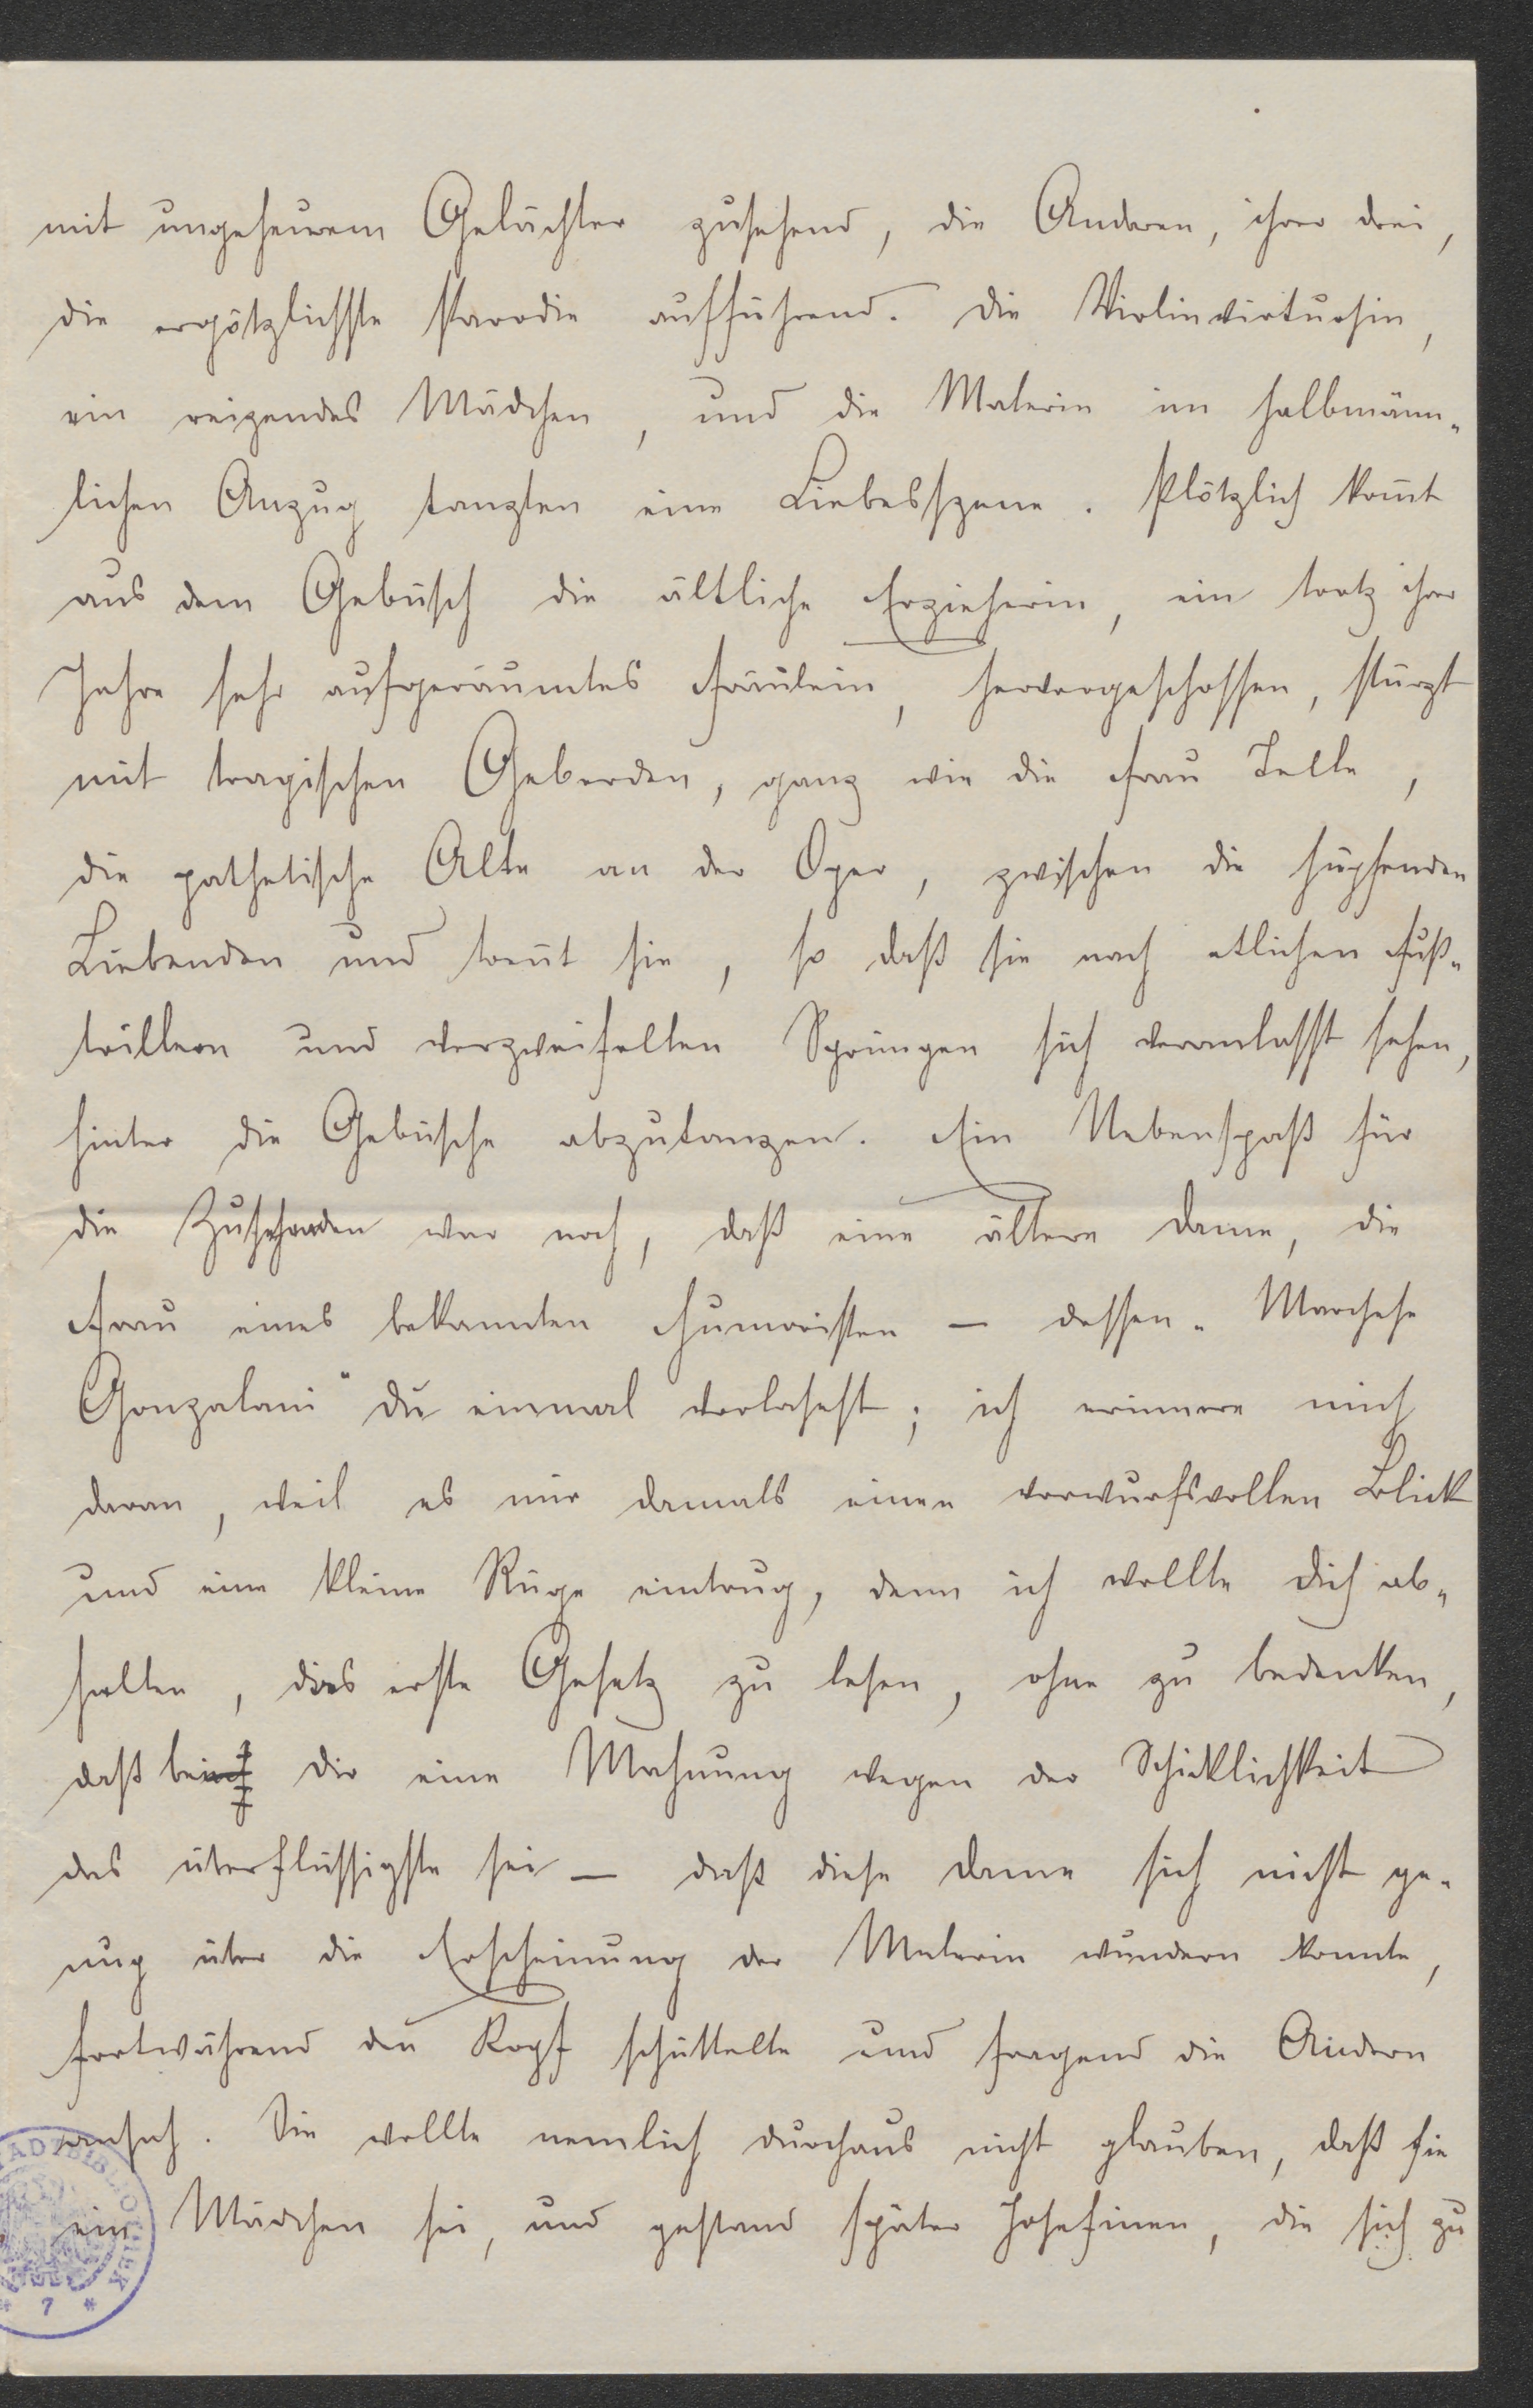 mit ungeheurem Gelächter zusehend, die Anderen, ihrer drei,
die ergötzlichste Parodie aufführend. Die Violinvirtuosin,
ein reizendes Mädchen, und die Malerin im halbmänn-
lichen Anzug tanzten eine Liebesszene. Plötzlich kom̅t
aus dem Gebüsch die ältliche Erzieherin, ein trotz ihrer
Jahre sehr aufgeräumtes Fräulein, hervorgeschossen, stürzt
mit tragischen Geberden, ganz wie die Frau Telle,
die pathetische Alte an der Oper, zwischen die hüpfenden
Liebenden und tren̅t sie, so daß sie nach etlichen Fuß-
trillern und verzweifelten Sprüngen sich veranlasst sehen,
hinter die Gebüsche abzutanzen. Ein Nebenspaß für
die Zusehenden war noch, daß eine ältere Dame, die
Frau eines bekannten Humoristen — dessen „Marchese
Gonzalani“ Du einmal vorlasest; ich erinnere mich
daran, weil es mir damals einen vorwurfsvollen Blick
und eine kleine Rüge eintrug, denn ich wollte Dich ab-
halten, das erste Gesetz zu lesen, ohne zu bedenken,
daß bei Dir eine Mahnung wegen der Schicklichkeit
das überflüssigste sei — daß diese Dame sich nicht ge-
nug über die Erscheinung der Malerin wundern konnte,
fortwährend den Kopf schüttelte und fragend die Andern
ansah. Sie wollte nemlich durchaus nicht glauben, daß sie
ein Mädchen sei, und gestand später Josefinen, die sich zu
* 7 *